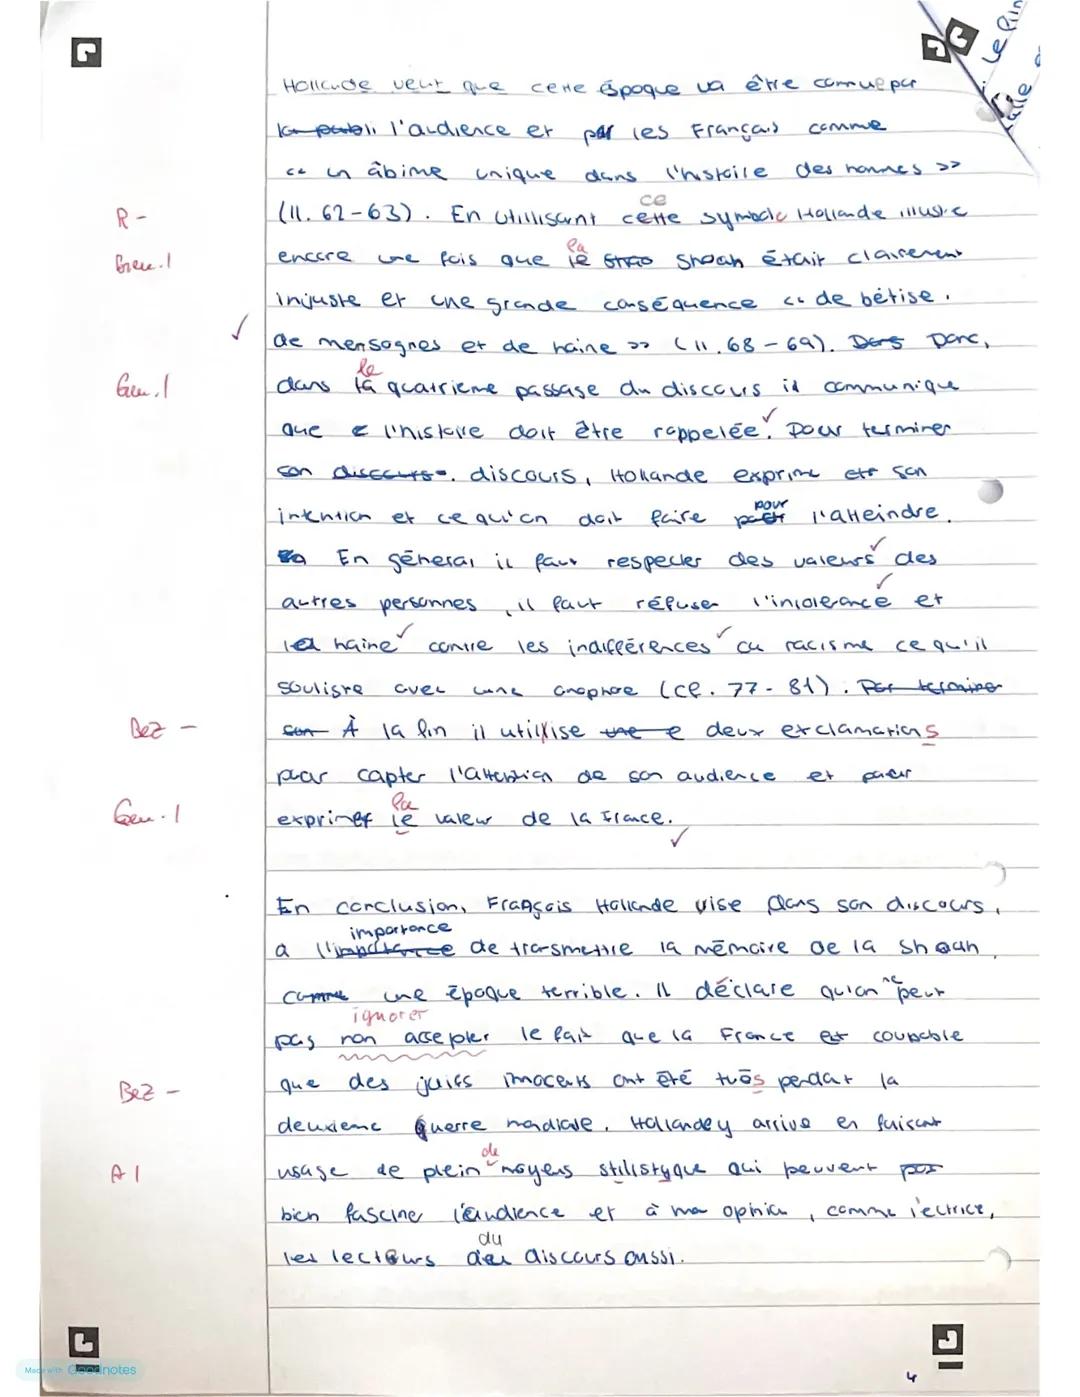 Le Pin
Hollande veut que cette époque va être connue par
l'audience et par les Français comme
<< un âbime unique dans l'histoire des hommes >>
ce
R -
(ll. 62-63). En utillisant cette symbole Hollande illustre
la
Gen. |
encore une fois que le Shoah était clairement
injuste et une grande conséquence << de bétise,
de mensognes et de haine >> (ll. 68-69). Dans Donc,
le
Gen. |
dans la quatrieme passage du discours il communique
que l'histoire doit être rappelée. Pour terminer
son discours. discours, Hollande exprime son
pour
intention et ce qu'on doit faire l'atteindre.
En géneral il faut respecter des valeurs des
autres personnes, il faut réfuser l'intolerance et
la haine contre les indifférences ou racisme ce qu'il
souligne avec une anaphore (cf. 77-81). Par terminer
Bez -
son À la fin il utillise une deux exclamations
pour capter l'attention de son audience et pour
la
Gen. |
exprimer le valeur de la France.
En conclusion, François Hollande vise dans son discours,
importance
a l'importance de transmettre la mémoire de la Shoah
comme une époque terrible. Il déclare qu'on ne peut
ignorer
pas non accepter le fait que la France est coupable
Bez -
que des juifs innocents ont été tués pendant la
deuxieme guerre mondiale. Hollande y arrive en faisant
de
A |
usage de plein moyens stilistyque qui peuvent
bien fascine l'audience et à ma opinion, comme lectrice,
du
les lecteurs discours aussi.
Made with Goodnotes
4